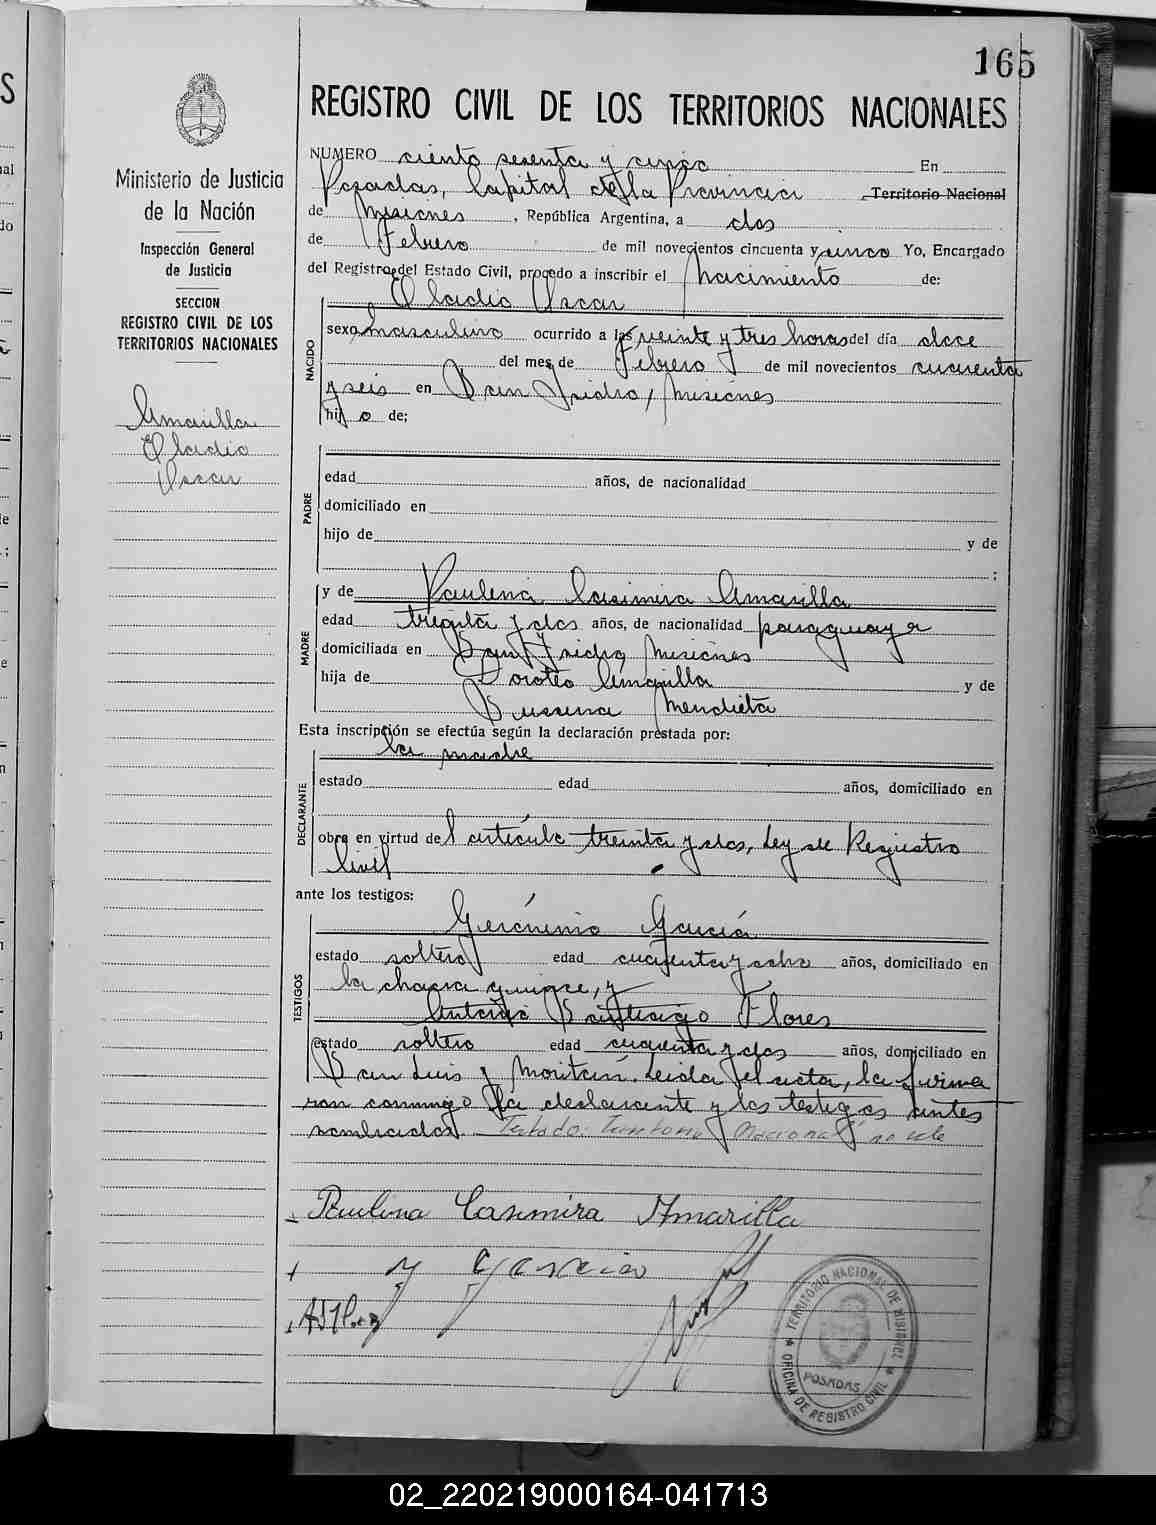 165
REGISTRO CIVIL DE LOS TERRITORIOS NACIONALES
Ministerio de Justicia
de la Nación
Inspección General
de Justicia
SECCION
REGISTRO CIVIL DE LOS
TERRITORIOS NACIONALES
Amarilla
Eladio
Oscar
NUMERO ciento sesenta y cinco En
Posadas, Capital de la Provincia Territorio Nacional
de Misiones, República Argentina, a dos
de Febrero de mil novecientos cincuenta y cinco Yo, Encargado
del Registro del Estado Civil, procedo a inscribir el Nacimiento de:
Eladio Oscar
NACIDO
sexo masculino ocurrido a las veinte y tres horas del día doce
del mes de Febrero de mil novecientos cuarenta
y seis en San Isidro, Misiones
hijo de;
PADRE
edad años, de nacionalidad
domiciliado en
hijo de y de
;
MADRE
y de Paulina Casimira Amarilla
edad treinta y dos años, de nacionalidad paraguaya
domiciliada en San Isidro, Misiones
hija de Doroteo Amarilla y de
Mendieta
Esta inscripción se efectúa según la declaración prestada por:
la madre
DECLARANTE
estado edad años, domiciliado en
obra en virtud del artículo treinta y dos, Ley de Registro
Civil
ante los testigos:
TESTIGOS
Gerónimo García
estado soltero edad cuarenta y ocho años, domiciliado en
la chacra quince, y
Antonio Santiago Flores
estado soltero edad cuarenta y dos años, domiciliado en
San Luis y Moritán. Leida el acta, la firma
ron conmigo la declarante y los testigos antes
nombrados. Testado: Territorio Nacional no vale
Paulina Casimira Amarilla
y Garcia
TERRITORIO NACIONAL DE MISIONES
POSADAS
OFICINA DE REGISTRO CIVIL
02_220219000164-041713